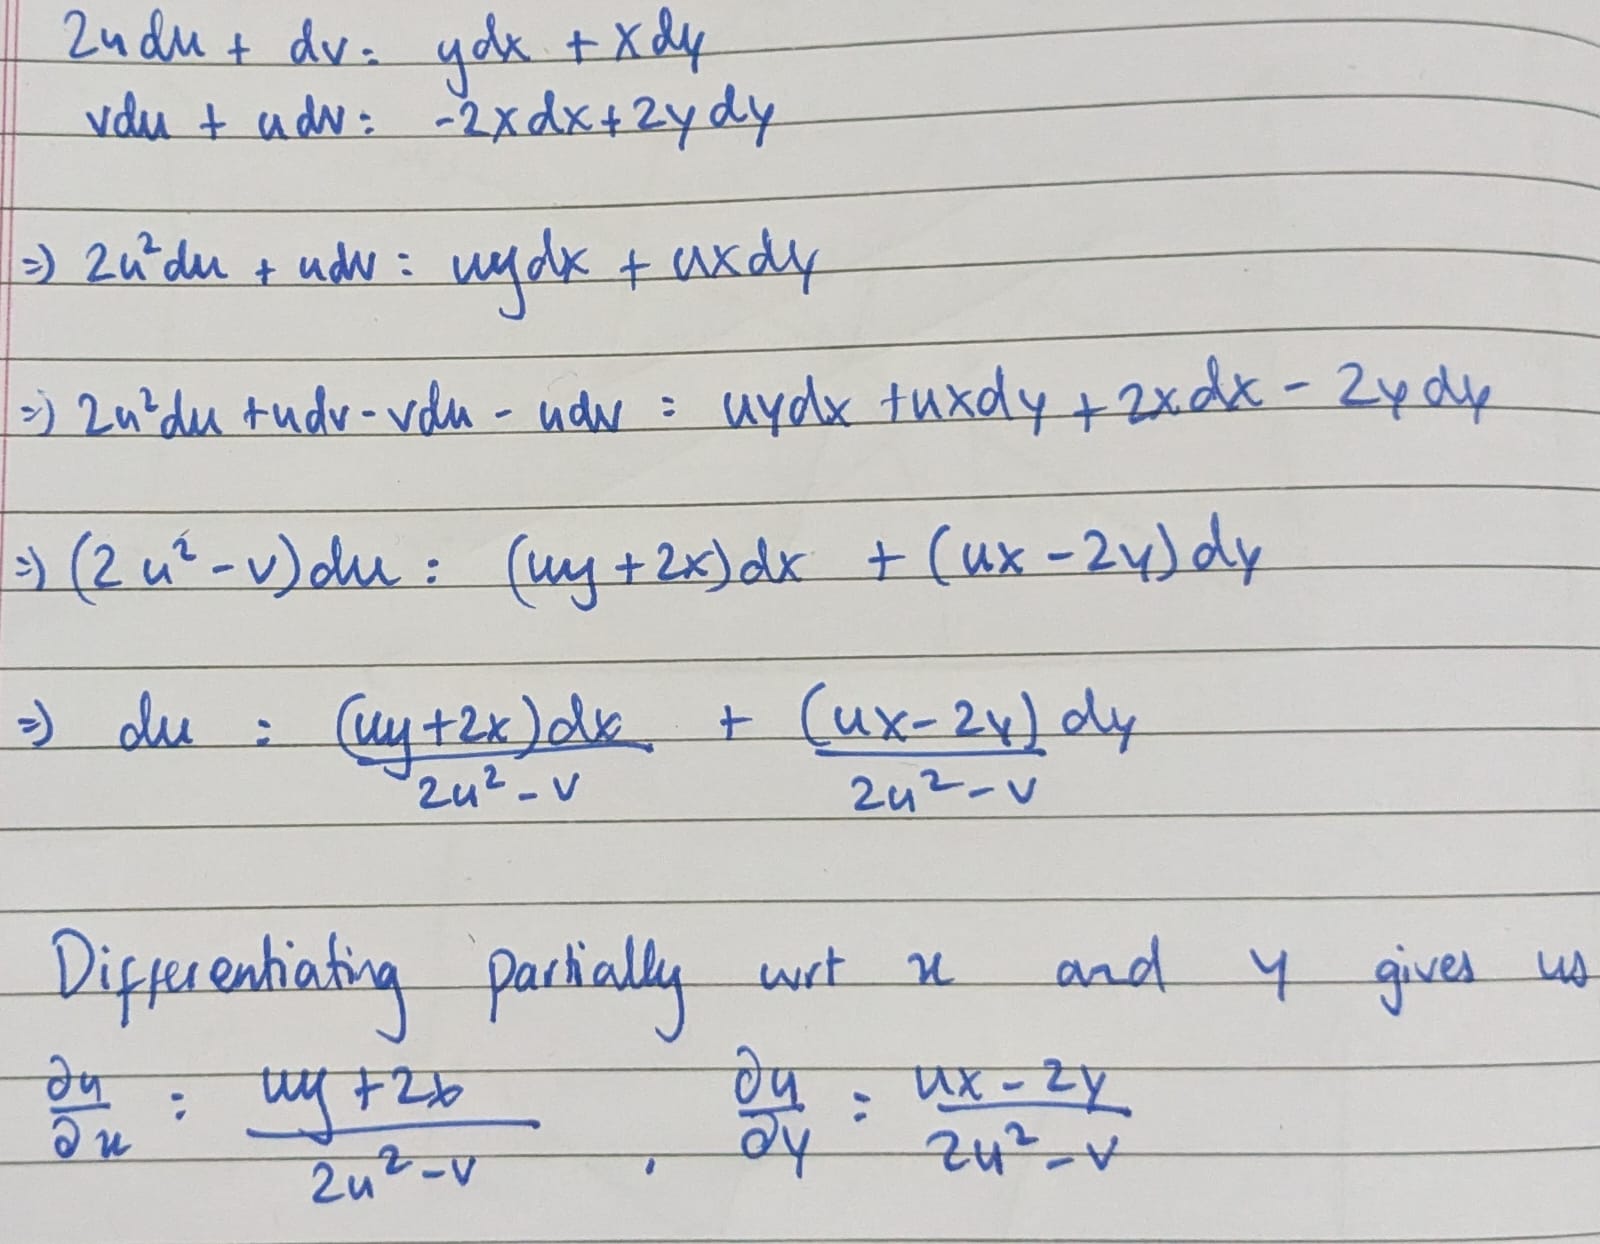 2udu + dv = ydx + xdy
vdu + udv = -2xdx + 2ydy
⇒ 2u²du + udv = uydx + uxdy
⇒ 2u²du + udv - vdu - udv = uydx + uxdy + 2xdx - 2ydy
⇒ (2u² - v)du = (uy + 2x)dx + (ux - 2y)dy
⇒ du = (uy+2x)dx/(2u² - v) + (ux - 2y)dy/(2u² - v)
Differentiating partially wrt x and y gives us
∂u/∂x = (uy + 2x)/(2u² - v) , ∂u/∂y = (ux - 2y)/(2u² - v)